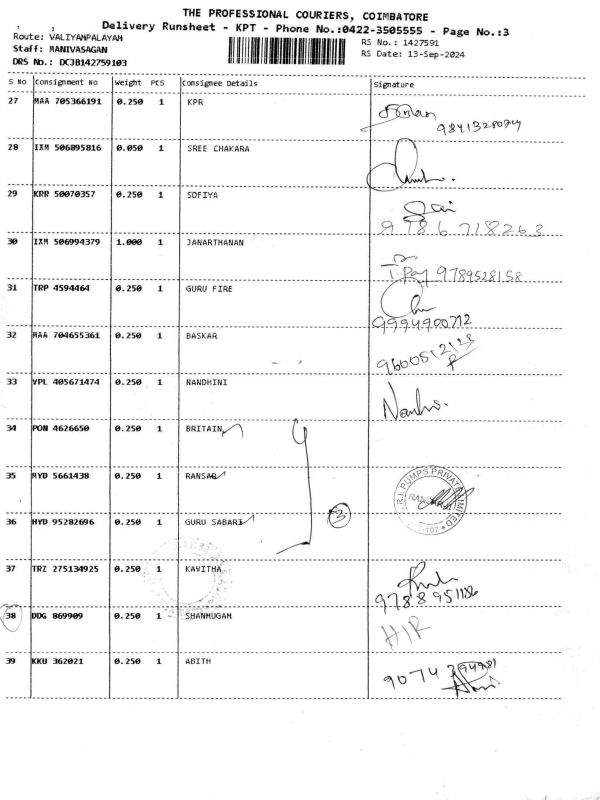 THE PROFESSIONAL COURIERS, COIMBATORE
Delivery Runsheet - KPT - Phone No.:0422-3505555 - Page No.:3
Route: VALIYAMPALAYAM
Staff: MANIVASAGAN
DRS No.: DCJB142759103
RS No.: 1427591
RS Date: 13-Sep-2024
S No Consignment No Weight PCS Consignee Details Signature
27 MAA 705366191 0.250 1 KPR
9841328084
28 IXM 506895816 0.050 1 SREE CHAKARA
29 KRR 50070357 0.250 1 SOFIYA
9786718263
30 IXM 506994379 1.000 1 JANARTHANAN
9789528158
31 TRP 4594464 0.250 1 GURU FIRE
9994900712
32 MAA 704655361 0.250 1 BASKAR
9600512123
33 VPL 405671474 0.250 1 NANDHINI
34 PON 4626650 0.250 1 BRITAIN
35 MYD 5661438 0.250 1 RANSAR
R.J. PUMPS PRIVATE LIMITED
3
36 HYD 95282696 0.250 1 GURU SABARI
37 TRZ 275134925 0.250 1 KAVITHA
38 DDG 869909 0.250 1 SHANMUGAM
H/R
39 KKU 362021 0.250 1 ABITH